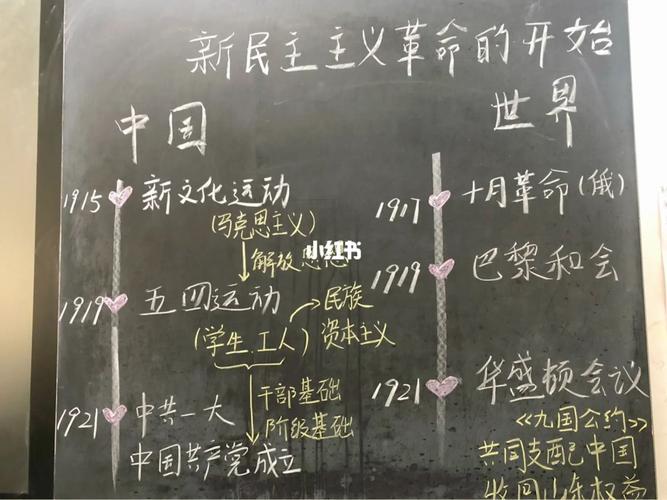 新民主主义革命的开始
中国
1915 新文化运动
(马克思主义)
解放思想
1919 五四运动
(学生.工人)
民族
资本主义
干部基础
阶级基础
1921 中共一大
中国共产党成立
世界
1917 十月革命(俄)
1919 巴黎和会
1921 华盛顿会议
《九国公约》
共同支配中国
收回山东权益
小红书